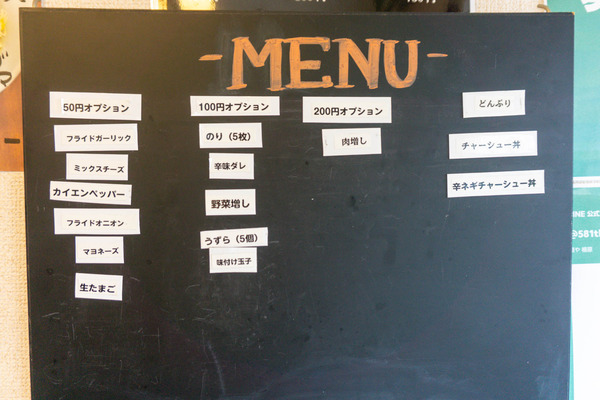 -MENU-
50円オプション
フライドガーリック
ミックスチーズ
カイエンペッパー
フライドオニオン
マヨネーズ
生たまご
100円オプション
のり（5枚）
辛味ダレ
野菜増し
うずら（5個）
味付け玉子
200円オプション
肉増し
どんぶり
チャーシュー丼
辛ネギチャーシュー丼
INE 公式
@581th